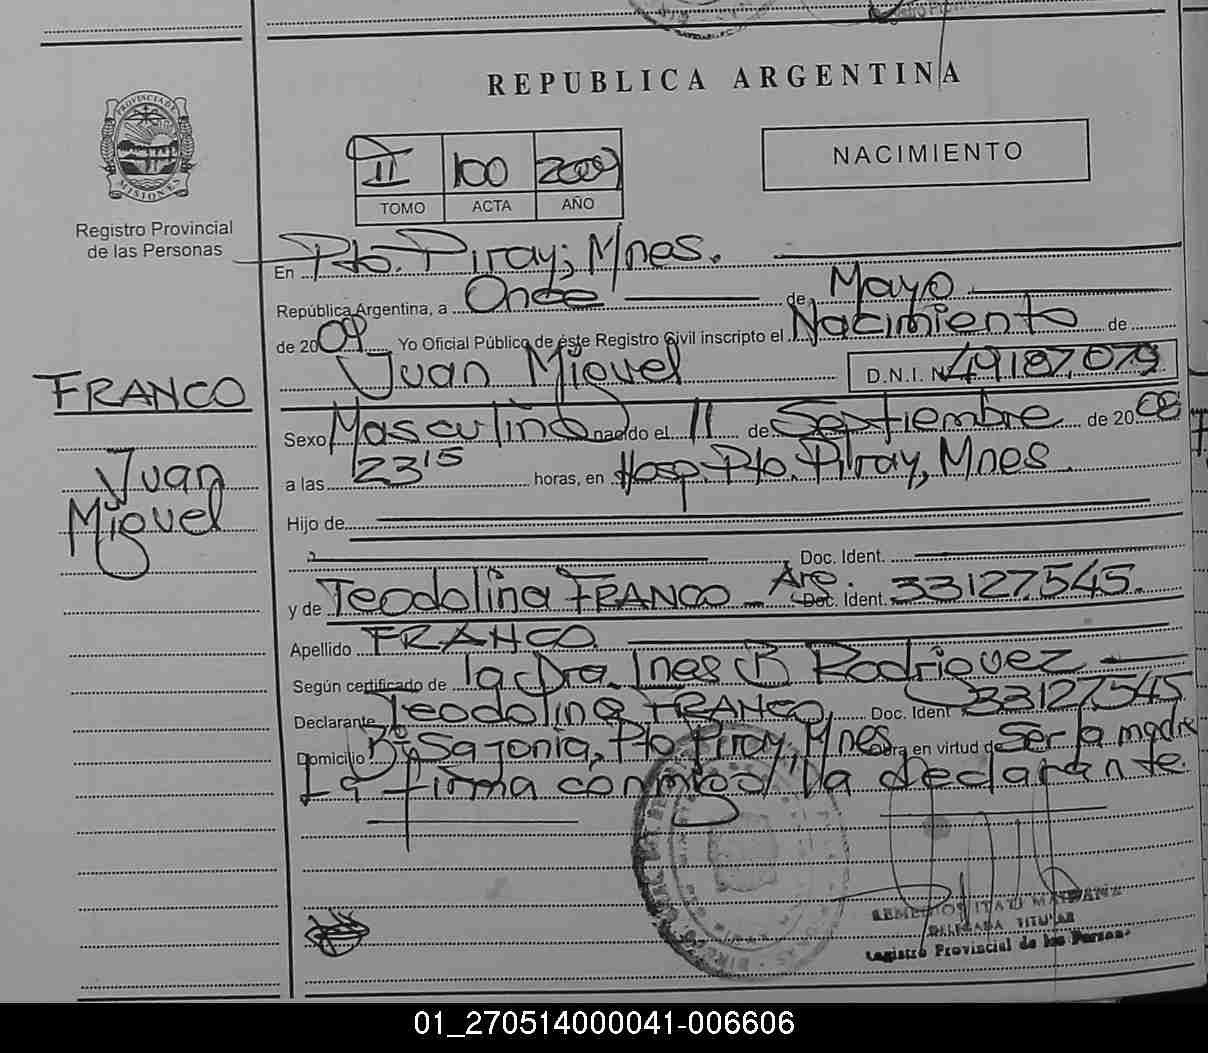 REPUBLICA ARGENTINA
PROVINCIA DE
MISIONES
Registro Provincial
de las Personas
NACIMIENTO
II 100 2009
TOMO ACTA AÑO
En Pto. Piray; Mnes.
República Argentina, a Once de Mayo
de 2009 Yo Oficial Público de éste Registro Civil inscripto el Nacimiento de
Juan Miguel D.N.I. Nº 49187.079
FRANCO
Juan
Miguel
Sexo Masculino nacido el 11 de Septiembre de 2008
a las 23 15 horas, en Hosp. Pto. Piray, Mnes.
Hijo de
Doc. Ident.
y de Teodolina FRANCO - Arg. Doc. Ident. 33127.545.
Apellido FRANCO.
Según certificado de la Dra. Ines B Rodriguez
Declarante Teodolina FRANCO, Doc. Ident 33127.545
Domicilio Bº Sajonia, Pto Piray, Mnes Obra en virtud de Ser la madre
La firma conmigo la declarante.
ITATI
DELEGADA TITULAR
Registro Provincial de las Personas
01_270514000041-006606